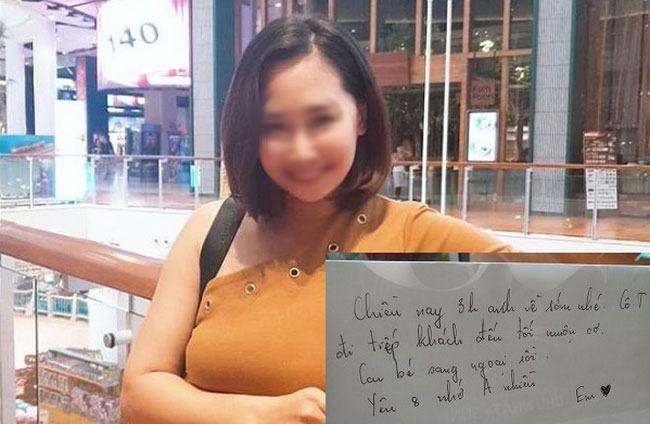 140
Chiều nay 3h anh về sớm nhé. Cô T
đi tiếp khách đến tối muộn cơ.
Con bé sang ngoại rồi.
Yên 8 nhớ A nhiều
Em ♥